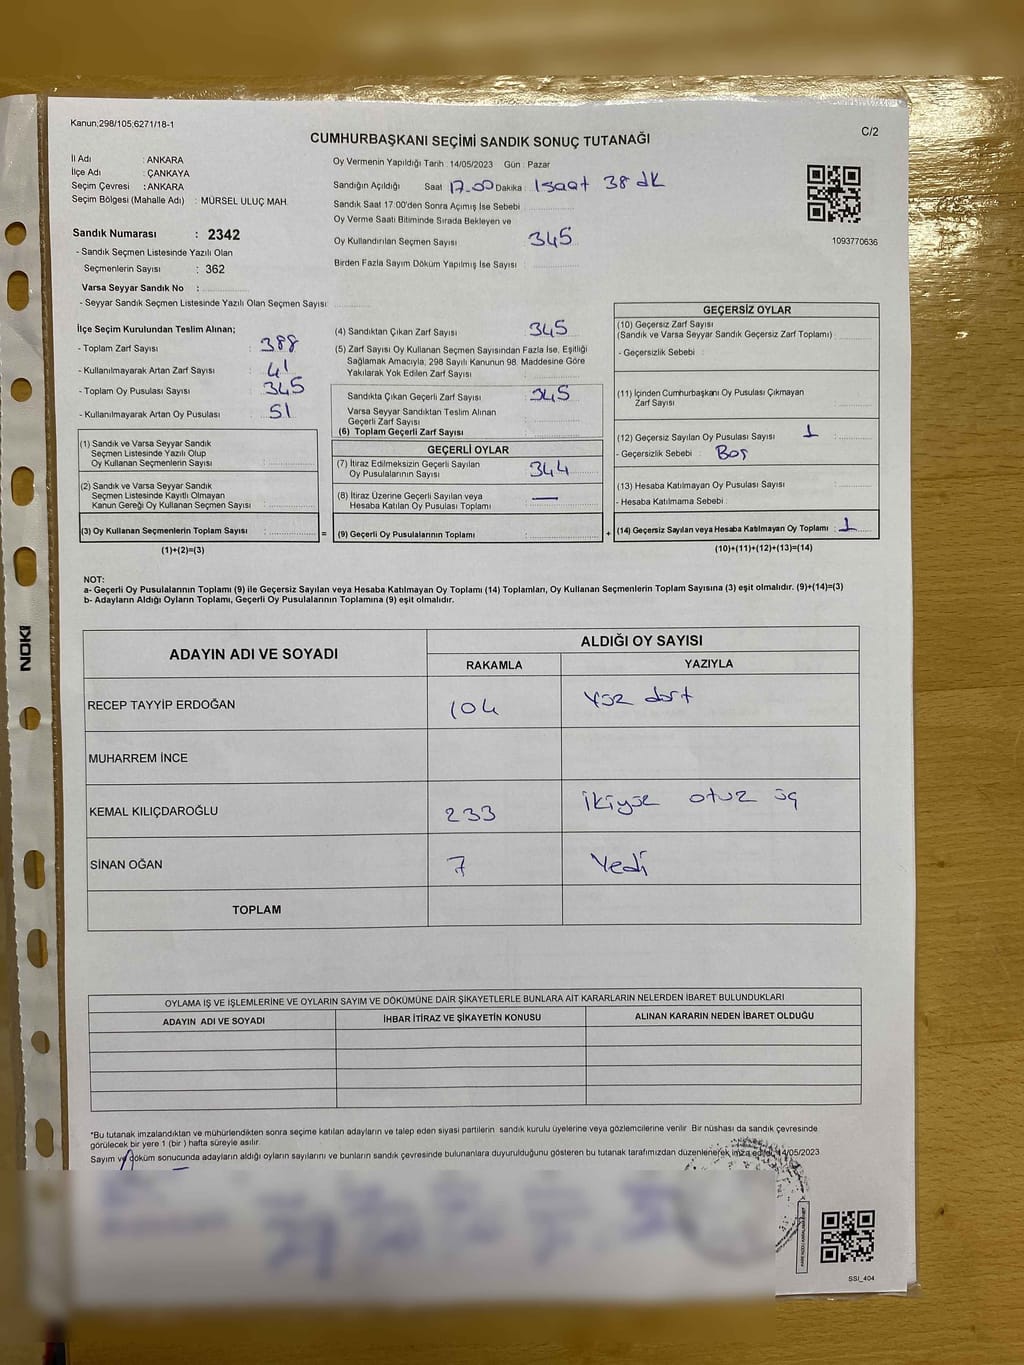 Kanun;298/105;6271/18-1
C/2
CUMHURBAŞKANI SEÇİMİ SANDIK SONUÇ TUTANAĞI
İl Adı : ANKARA
İlçe Adı : ÇANKAYA
Seçim Çevresi : ANKARA
Seçim Bölgesi (Mahalle Adı) : MÜRSEL ULUÇ MAH.
Sandık Numarası : 2342
- Sandık Seçmen Listesinde Yazılı Olan
Seçmenlerin Sayısı : 362
Varsa Seyyar Sandık No :
- Seyyar Sandık Seçmen Listesinde Yazılı Olan Seçmen Sayısı:
Oy Vermenin Yapıldığı Tarih : 14/05/2023 Gün : Pazar
Sandığın Açıldığı Saat 17.00 Dakika : 1 saat 38 dk
Sandık Saat 17:00'den Sonra Açımış İse Sebebi :
Oy Verme Saati Bitiminde Sırada Bekleyen ve
Oy Kullandırılan Seçmen Sayısı 345
Birden Fazla Sayım Döküm Yapılmış İse Sayısı :
1093770636
İlçe Seçim Kurulundan Teslim Alınan;
- Toplam Zarf Sayısı : 388
- Kullanılmayarak Artan Zarf Sayısı : 41
- Toplam Oy Pusulası Sayısı : 345
- Kullanılmayarak Artan Oy Pusulası : 51
(1) Sandık ve Varsa Seyyar Sandık
Seçmen Listesinde Yazılı Olup
Oy Kullanan Seçmenlerin Sayısı :
(2) Sandık ve Varsa Seyyar Sandık
Seçmen Listesinde Kayıtlı Olmayan
Kanun Gereği Oy Kullanan Seçmen Sayısı :
(3) Oy Kullanan Seçmenlerin Toplam Sayısı : =
(1)+(2)=(3)
(4) Sandıktan Çıkan Zarf Sayısı 345
(5) Zarf Sayısı Oy Kullanan Seçmen Sayısından Fazla İse, Eşitliği
Sağlamak Amacıyla, 298 Sayılı Kanunun 98. Maddesine Göre
Yakılarak Yok Edilen Zarf Sayısı :
Sandıkta Çıkan Geçerli Zarf Sayısı 345
Varsa Seyyar Sandıktan Teslim Alınan
Geçerli Zarf Sayısı :
(6) Toplam Geçerli Zarf Sayısı
GEÇERLİ OYLAR
(7) İtiraz Edilmeksizin Geçerli Sayılan
Oy Pusulalarının Sayısı : 344
(8) İtiraz Üzerine Geçerli Sayılan veya
Hesaba Katılan Oy Pusulası Toplamı : —
(9) Geçerli Oy Pusulalarının Toplamı : +
GEÇERSİZ OYLAR
(10) Geçersiz Zarf Sayısı
(Sandık ve Varsa Seyyar Sandık Geçersiz Zarf Toplamı) :
- Geçersizlik Sebebi :
(11) İçinden Cumhurbaşkanı Oy Pusulası Çıkmayan
Zarf Sayısı
(12) Geçersiz Sayılan Oy Pusulası Sayısı 1
- Geçersizlik Sebebi : Boş
(13) Hesaba Katılmayan Oy Pusulası Sayısı
- Hesaba Katılmama Sebebi :
(14) Geçersiz Sayılan veya Hesaba Katılmayan Oy Toplamı : 1
(10)+(11)+(12)+(13)=(14)
NOT:
a- Geçerli Oy Pusulalarının Toplamı (9) ile Geçersiz Sayılan veya Hesaba Katılmayan Oy Toplamı (14) Toplamları, Oy Kullanan Seçmenlerin Toplam Sayısına (3) eşit olmalıdır. (9)+(14)=(3)
b- Adayların Aldığı Oyların Toplamı, Geçerli Oy Pusulalarının Toplamına (9) eşit olmalıdır.
NOKI
ADAYIN ADI VE SOYADI ALDIĞI OY SAYISI
RAKAMLA YAZIYLA
RECEP TAYYİP ERDOĞAN 104 Yüz dört
MUHARREM İNCE
KEMAL KILIÇDAROĞLU 233 ikiyüz otuz üç
SİNAN OĞAN 7 Yedi
TOPLAM
OYLAMA İŞ VE İŞLEMLERİNE VE OYLARIN SAYIM VE DÖKÜMÜNE DAİR ŞİKAYETLERLE BUNLARA AİT KARARLARIN NELERDEN İBARET BULUNDUKLARI
ADAYIN ADI VE SOYADI İHBAR İTİRAZ VE ŞİKAYETİN KONUSU ALINAN KARARIN NEDEN İBARET OLDUĞU
*Bu tutanak imzalandıktan ve mühürlendikten sonra seçime katılan adayların ve talep eden siyasi partilerin sandık kurulu üyelerine veya gözlemcilerine verilir. Bir nüshası da sandık çevresinde
görülecek bir yere 1 (bir ) hafta süreyle asılır.
Sayım ve döküm sonucunda adayların aldığı oyların sayılarını ve bunların sandık çevresinde bulunanlara duyurulduğunu gösteren bu tutanak tarafımızdan düzenlenerek imza edildi. 14/05/2023
SSI_404